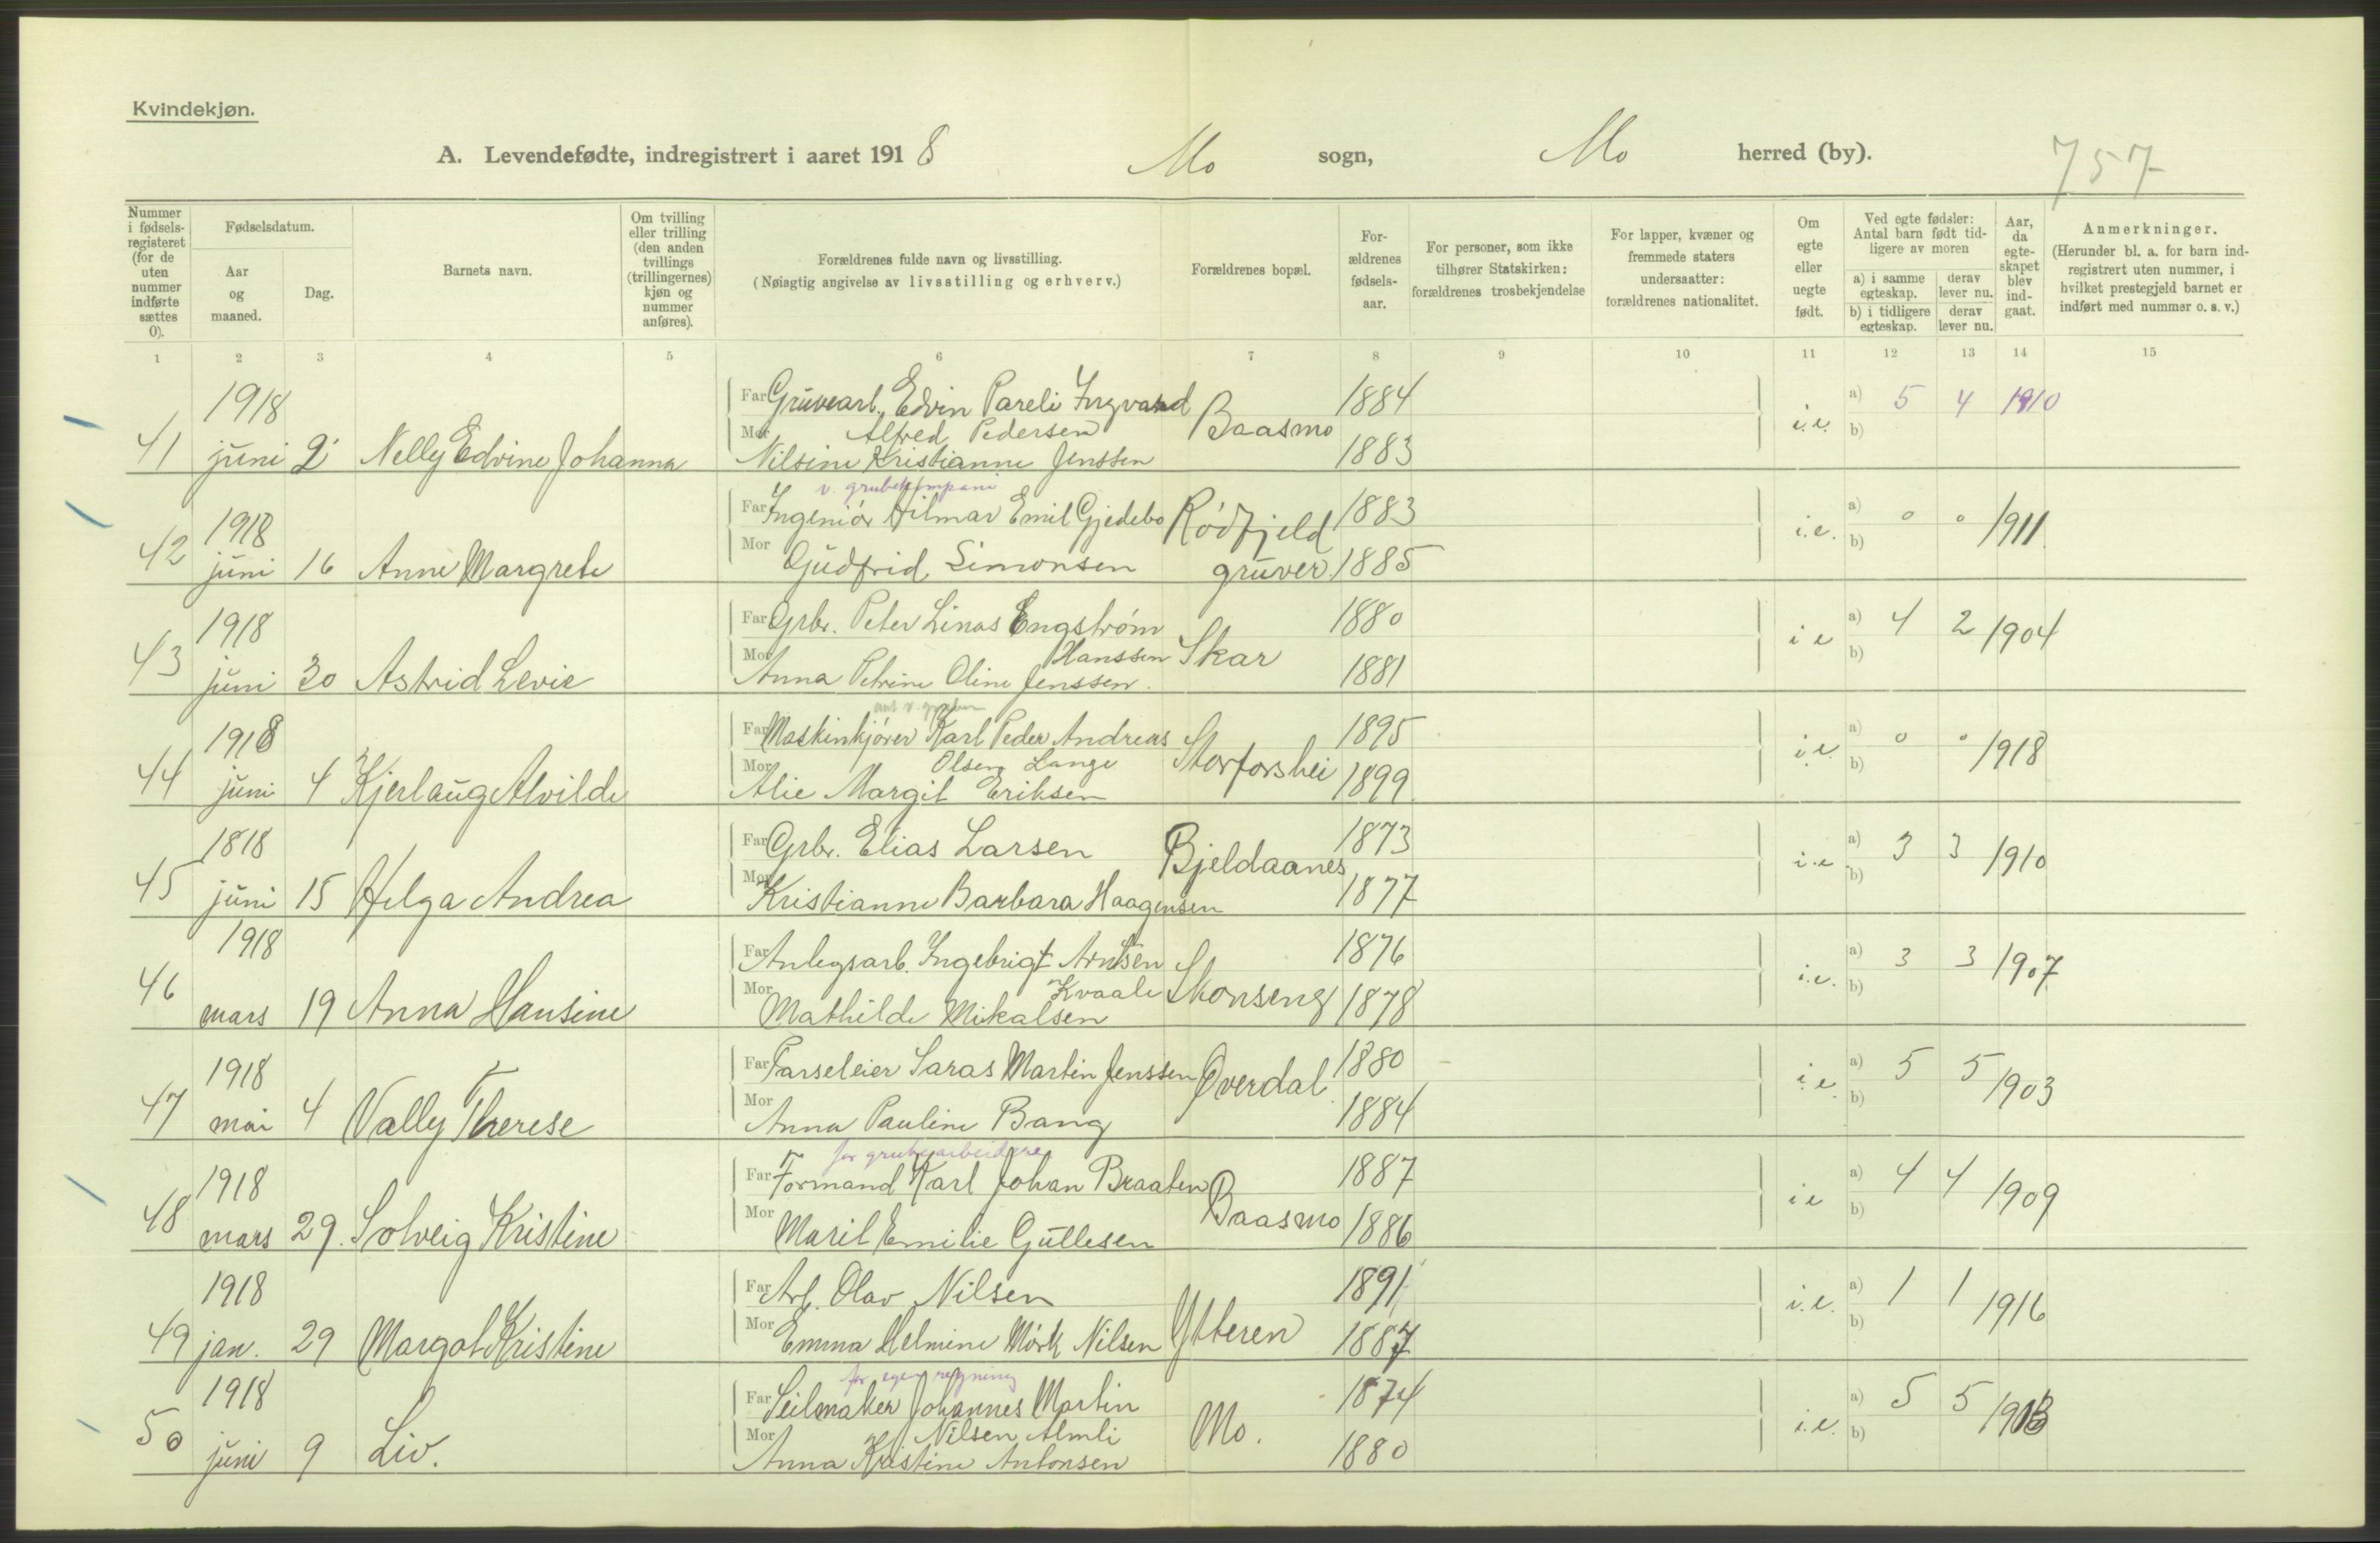 Kvindekjøn.
A. Levendefødte, indregistrert i aaret 1918 Mo sogn, Mo herred (by). 757
Nummer i fødselsregisteret (for de uten nummer indførte sættes 0).
Fødselsdatum.
Aar og maaned.
Dag.
Barnets navn.
Om tvilling eller trilling (den anden tvillings (trillingernes) kjøn og nummer anføres).
Forældrenes fulde navn og livsstilling.
(Nøiagtig angivelse av livsstilling og erhverv.)
Forældrenes bopæl.
Forældrenes fødselsaar.
For personer, som ikke tilhører Statskirken: forældrenes trosbekjendelse
For lapper, kvæner og fremmede staters undersaatter: forældrenes nationalitet.
Om egte eller uegte født.
Ved egte fødsler: Antal barn født tidligere av moren
a) i samme egteskap. derav lever nu.
b) i tidligere egteskap. derav lever nu.
Aar, da egteskapet blev indgaat.
Anmerkninger.
(Herunder bl. a. for barn indregistrert uten nummer, i hvilket prestegjeld barnet er indført med nummer o. s. v.)
1 2 3 4 5 6 7 8 9 10 11 12 13 14 15
1918 Far Gruvearb. Edvin Pareli Ingvard 1884 a) 5 4 1910
Mor Alfred Pedersen Baasmo i.e. b)
41 juni 2 Nelly Edvine Johanna Nilsine Kristianne Jenssen 1883
v. grubekompani
1918 Far Ingeniør Hilmar Emil Gjedebo Rødfjeld 1883 a) 0 0 1911
42 juni 16 Anne Margrete Mor Gudfrid Simonsen gruver 1885 i.e. b)
1918 Far Grbr. Peter Linas Engstrøm 1880 a) 4 2 1904
Mor Hanssen Skar i e b)
43 juni 30 Astrid Levie Anna Petrine Oline Jenssen. 1881
1918 Far Maskinkjører Karl Peder Andreas 1895 a) 0 0 1918
Mor Olsen Lange Storforshei i.e. b)
44 juni 4 Kjerlaug Alvilde Alie Margit Eriksen 1899
1818 Far Grbr. Elias Larsen Bjeldaanes 1873 a) 3 3 1910
45 juni 15 Helga Andrea Mor Kristianne Barbara Haagensen 1877 i.e. b)
1918 Far Anlegsarb. Ingebrigt Arntsen 1876 a) 3 3 1907
Mor Kvaale Skonseng i.e. b)
46 mars 19 Anna Hansine Mathilde Mikalsen 1878
1918 Far Parseleier Saras Martin Jenssen Øverdal 1880 a) 5 5 1903
47 mai 4 Vally Therese Mor Anna Pauline Bang 1884 i.e. b)
for grubearbeidere
1918 Far Formand Karl Johan Braaten Baasmo 1887 a) 4 4 1909
48 mars 29. Solveig Kristine Mor Maril Emilie Gullesen 1886 i e b)
1918 Far Arb. Olav Nilsen 1891 a) 1 1 1916
49 jan. 29 Margot Kristine Mor Emma Helmine Mörk Nilsen Ytteren 1887 i.e. b)
for egen regning
1918 Far Seilmaker Johannes Martin 1874 a) 5 5
Mor Nilsen Almli Mo. i.e. b)
50 juni 9 Liv. Anna Kristine Antonsen 1880